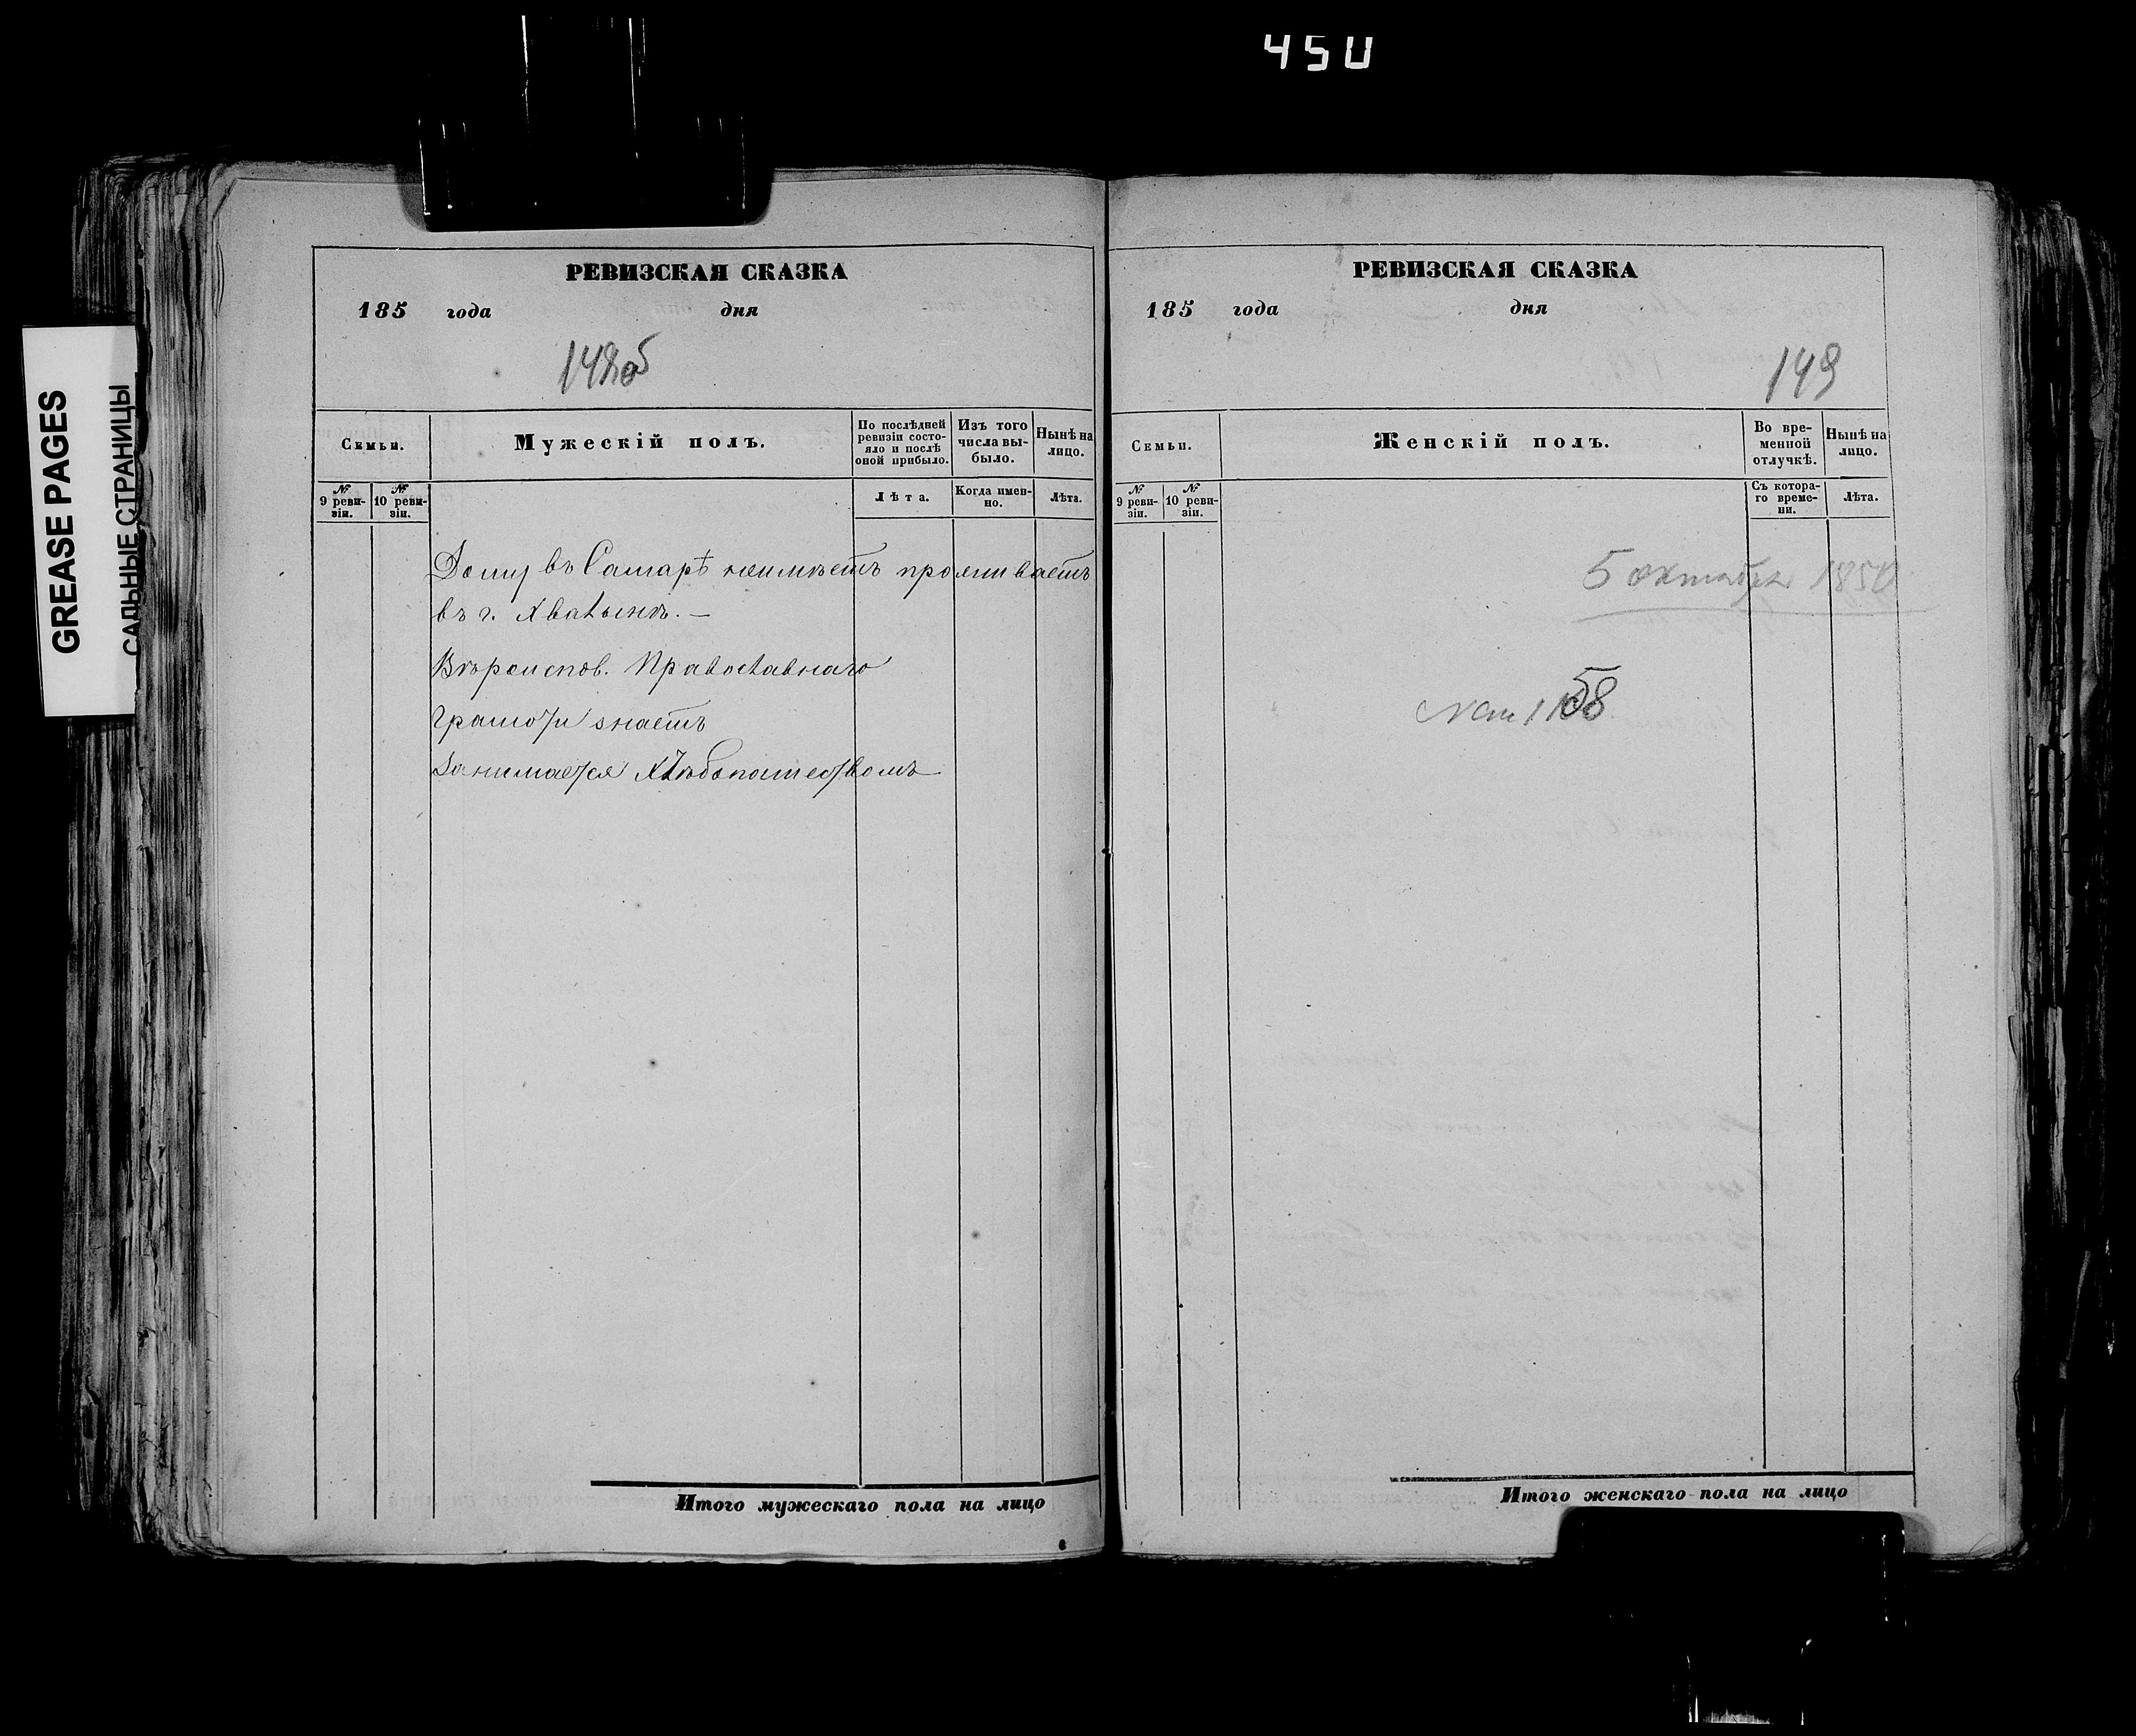 450
GREASE PAGES
САЛЬНЫЕ СТРАНИЦЫ
РЕВИЗСКАЯ СКАЗКА
185 года дня
148об
Семьи.
Мужескій полъ.
По послѣдней
ревизіи состо-
яло и послѣ
оной прибыло.
Изъ того
числа вы-
было.
Нынѣ на
лицо.
№
9 реви-
зіи.
№
10 реви-
зіи.
Лѣта.
Когда имен-
но.
Лѣта.
Дому въ Самарѣ неимѣетъ проживаетъ
въ г. Хвалынкѣ. —
Вѣроиспов. Православнаго
Грамоти знаетъ
Занимается хлѣбопашествомъ
Итого мужескаго пола на лицо
РЕВИЗСКАЯ СКАЗКА
185 года дня
149
Семьи.
Женскій полъ.
Во вре-
менной
отлучкѣ.
Нынѣ на
лицо.
№
9 реви-
зіи.
№
10 реви-
зіи.
Съ котора-
го време-
ни.
Лѣта.
5 октября 1850
Итого женскаго пола на лицо